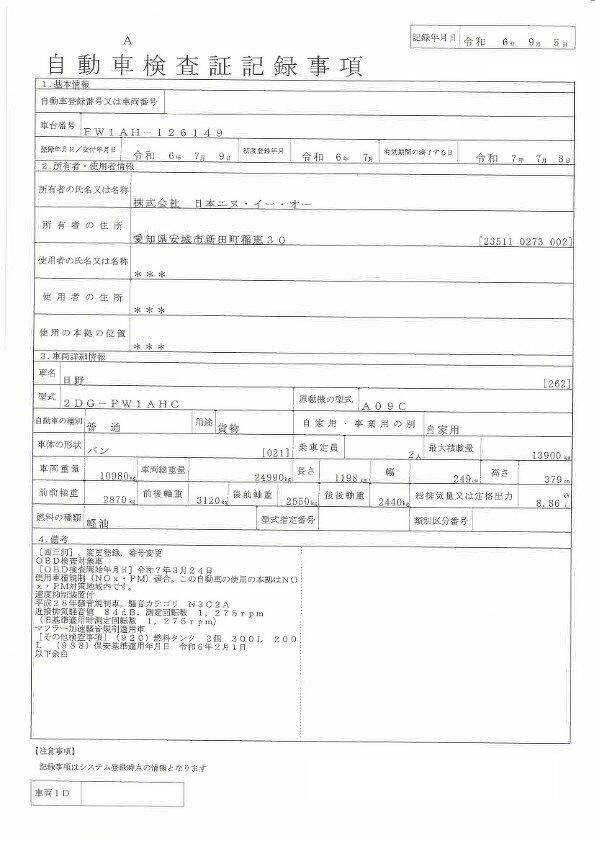 記録年月日 令和 6年 9月 5日
A
自動車検査証記録事項
1.基本情報
自動車登録番号又は車両番号
車台番号 FW1AH-126149
登録年月日/交付年月日 令和 6年 7月 9日 初度登録年月 令和 6年 7月 有効期間の満了する日 令和 7年 7月 8日
2.所有者・使用者情報
所有者の氏名又は名称 株式会社 日本エヌ・イー・オー
所有者の住所 愛知県安城市新田町稲恵30 [23511 0273 002]
使用者の氏名又は名称 ***
使用者の住所 ***
使用の本拠の位置 ***
3.車両詳細情報
車名 日野 [262]
型式 2DG-FW1AHC 原動機の型式 A09C
自動車の種別 普通 用途 貨物 自家用・事業用の別 自家用
車体の形状 バン [021] 乗車定員 2人 最大積載量 13900kg
車両重量 10980kg 車両総重量 24990kg 長さ 1198cm 幅 249cm 高さ 379cm
前前軸重 2870kg 前後軸重 3120kg 後前軸重 2550kg 後後軸重 2440kg 総排気量又は定格出力 8.86 kW L
燃料の種類 軽油 型式指定番号 類別区分番号
4.備考
[西三河],変更登録,番号変更
OBD検査対象車
[OBD検査開始年月日]令和7年3月24日
使用車種規制(NOx・PM)適合。この自動車の使用の本拠はNO
x・PM対策地域内です。
速度抑制装置付
平成28年騒音規制車,騒音カテゴリ N3C2A
近接排気騒音値 84dB,測定回転数 1,275rpm
(旧基準適用時測定回転数 1,275rpm)
マフラー加速騒音規制適用車
[その他検査事項](920)燃料タンク 2個 300L 200
L (988)保安基準適用年月日 令和6年2月1日
以下余白
【注意事項】
記録事項はシステム登録時点の情報となります
車両ID